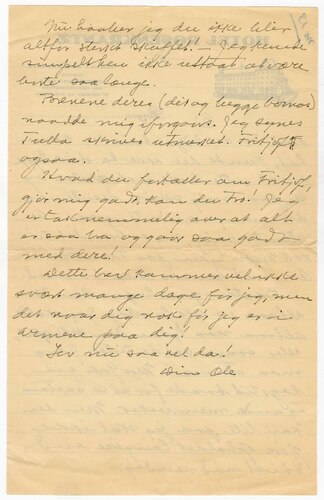 Nu haaber jeg du ikke blir
altfor sterkt skuffet. — Jeg kunde
simpelthen ikke utstaat at være
borte saa længe.
Brevene deres (det og begge barnas)
naadde mig iforgaars. Jeg synes
Tutta skriver utmerket. Fritjof
ogsaa.
Hvad du fortæller om Fritjof,
gjør mig godt, kan du tro. Jeg
er taknemmelig over at alt
er saa bra og gaar saa godt
med dere!
Dette brev kommer vel ikke
svært mange dage før jeg, men
det naar dig nok før jeg er i
armene paa dig!
Lev nu saa vel da!
Din Ole